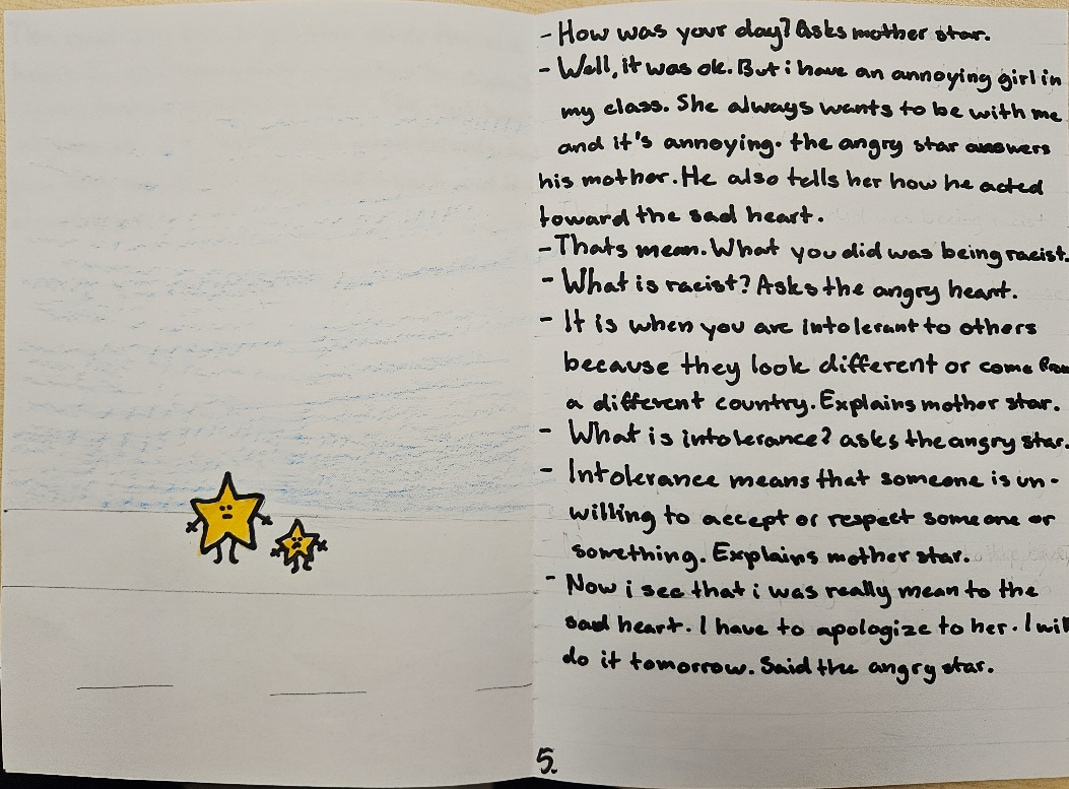 - How was your day? Asks mother star.
- Well, it was ok. But i have an annoying girl in
my class. She always wants to be with me
and it's annoying. the angry star answers
his mother. He also tells her how he acted
toward the sad heart.
- Thats mean. What you did was being racist.
- What is racist? Asks the angry heart.
- It is when you are intolerant to others
because they look different or come from
a different country. Explains mother star.
- What is intolerance? asks the angry star.
- Intolerance means that someone is un-
willing to accept or respect someone or
something. Explains mother star.
- Now i see that i was really mean to the
sad heart. I have to apologize to her. I will
do it tomorrow. Said the angry star.
5.